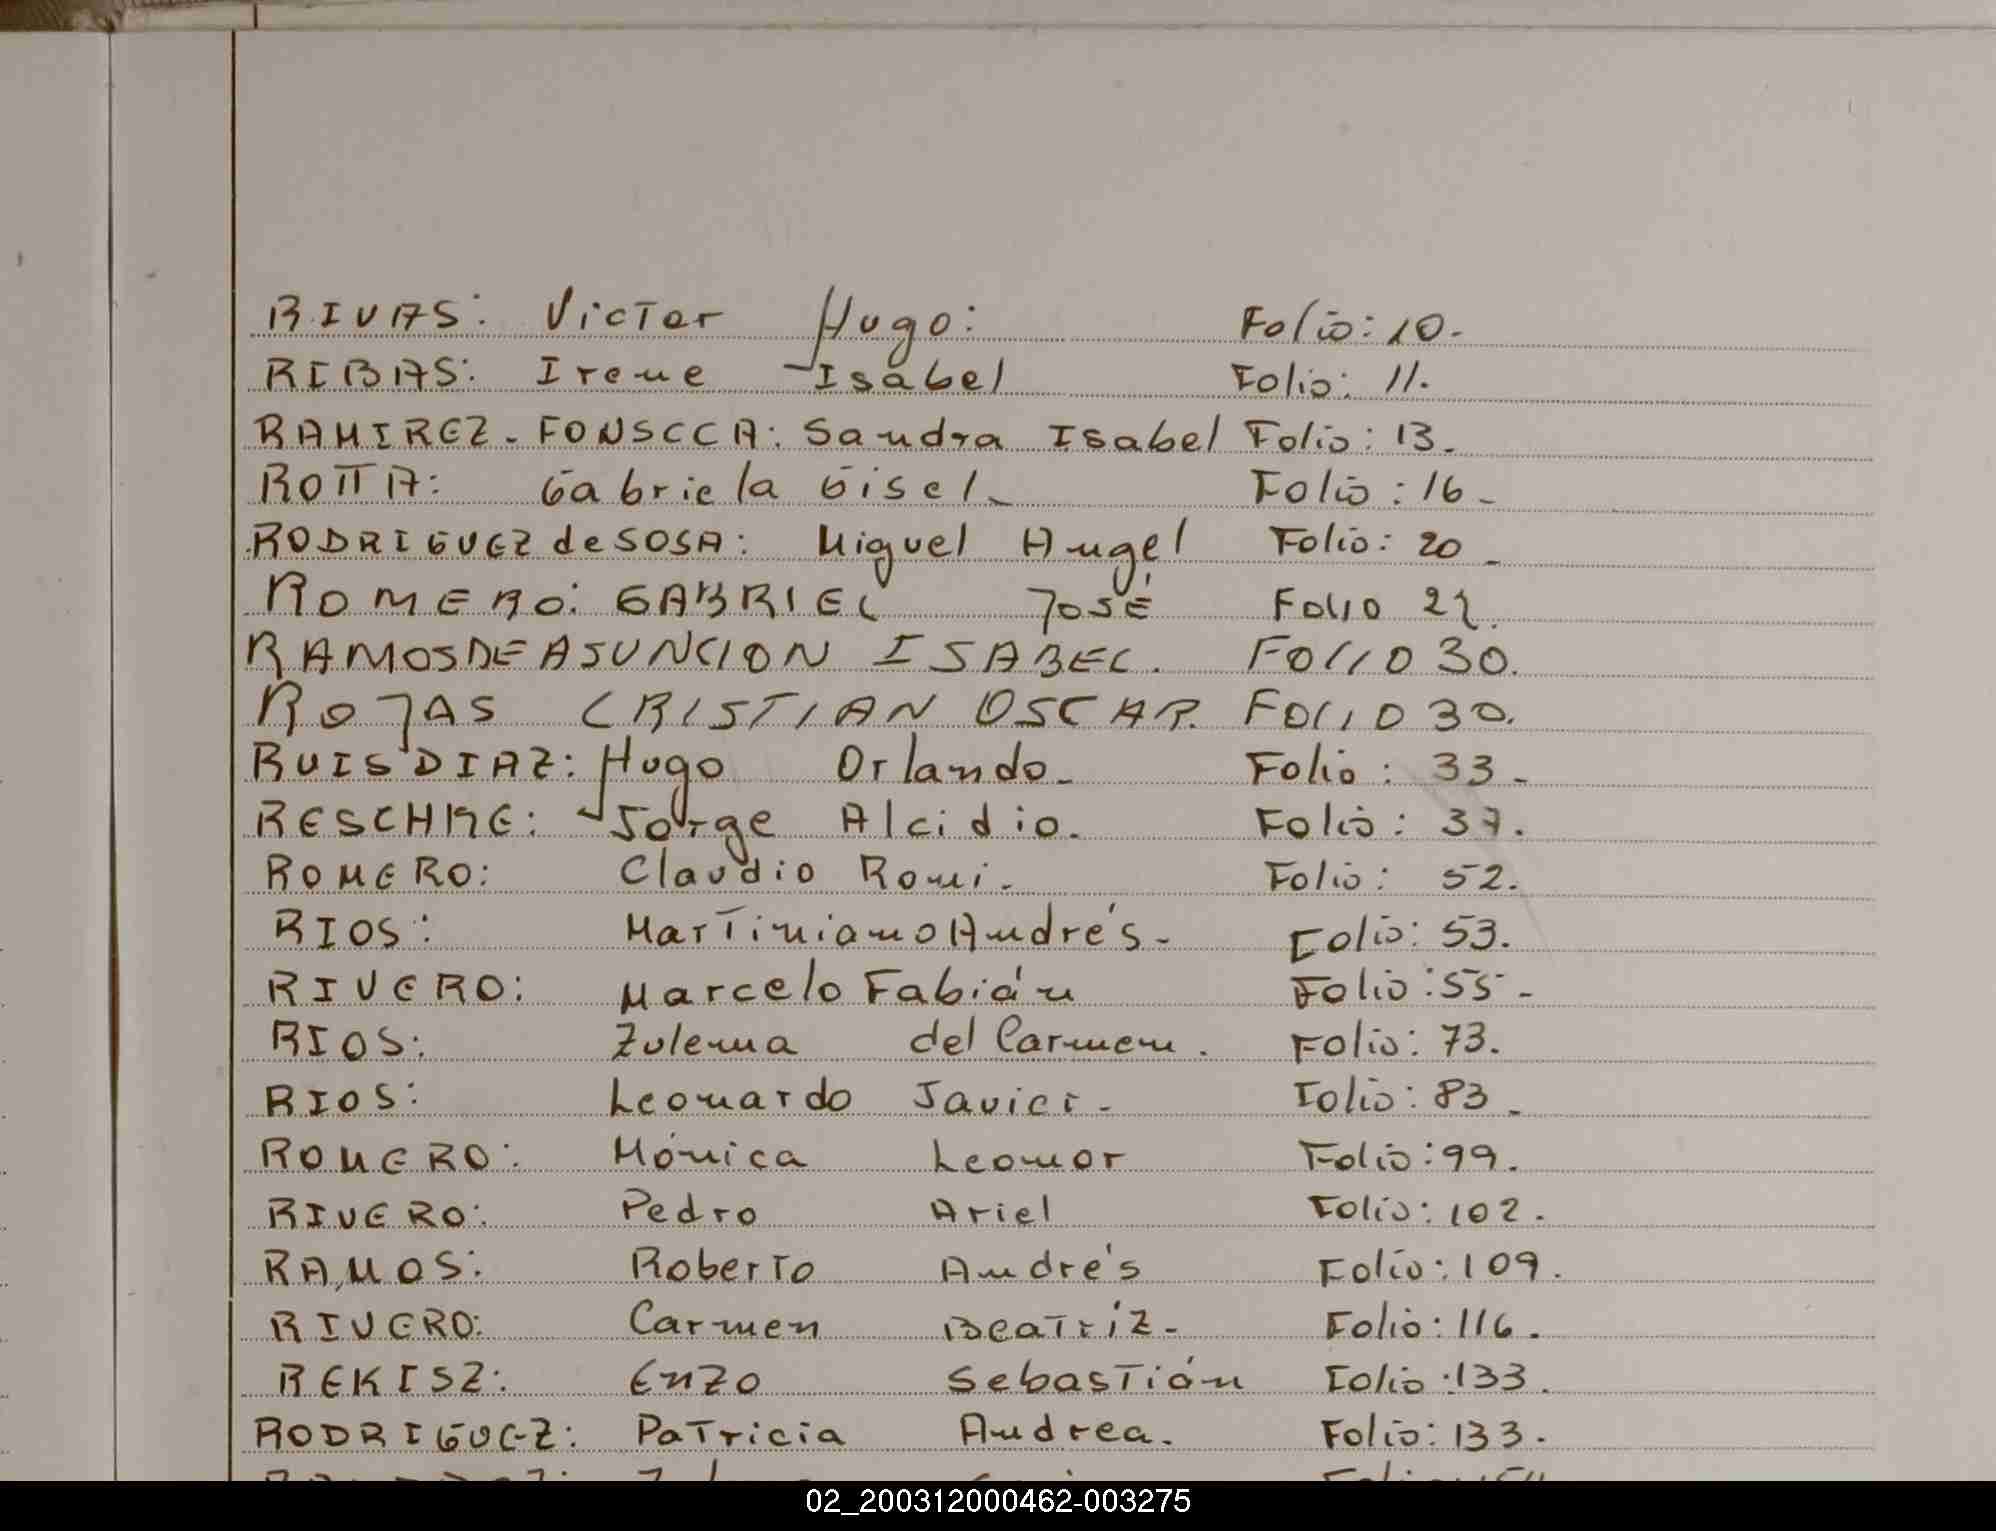 RIVAS: Victor Hugo: Folio: 10.
RIBAS: Irene Isabel Folio: 11.
RAMIREZ. FONSECA: Sandra Isabel Folio: 13.
ROTTA: Gabriela Gisel. Folio: 16.
RODRIGUEZ de SOSA: Miguel Angel Folio: 20
ROMERO: GABRIEL JOSÉ FOLIO
RAMOS DE ASUNCION ISABEL. FOLIO 30.
ROJAS CRISTIAN OSCAR. FOLIO 30.
RUIS DIAZ: Hugo Orlando. Folio: 33.
RESCHKE: Jorge Alcidio. Folio: 37.
ROMERO: Claudio Romi. Folio: 52.
RIOS: Martiniano Andrés. Folio: 53.
RIVERO: Marcelo Fabián Folio: 55.
RIOS: Zulema del Carmen. Folio: 73.
RIOS: Leonardo Javier. Folio: 83.
ROMERO: Mónica Leonor Folio: 99.
RIVERO: Pedro Ariel Folio: 102.
RAMOS: Roberto Andrés Folio: 109.
RIVERO: Carmen Beatriz. Folio: 116.
REKISZ: Enzo Sebastián Folio: 133.
RODRIGUEZ: Patricia Andrea. Folio: 133.
02_200312000462-003275